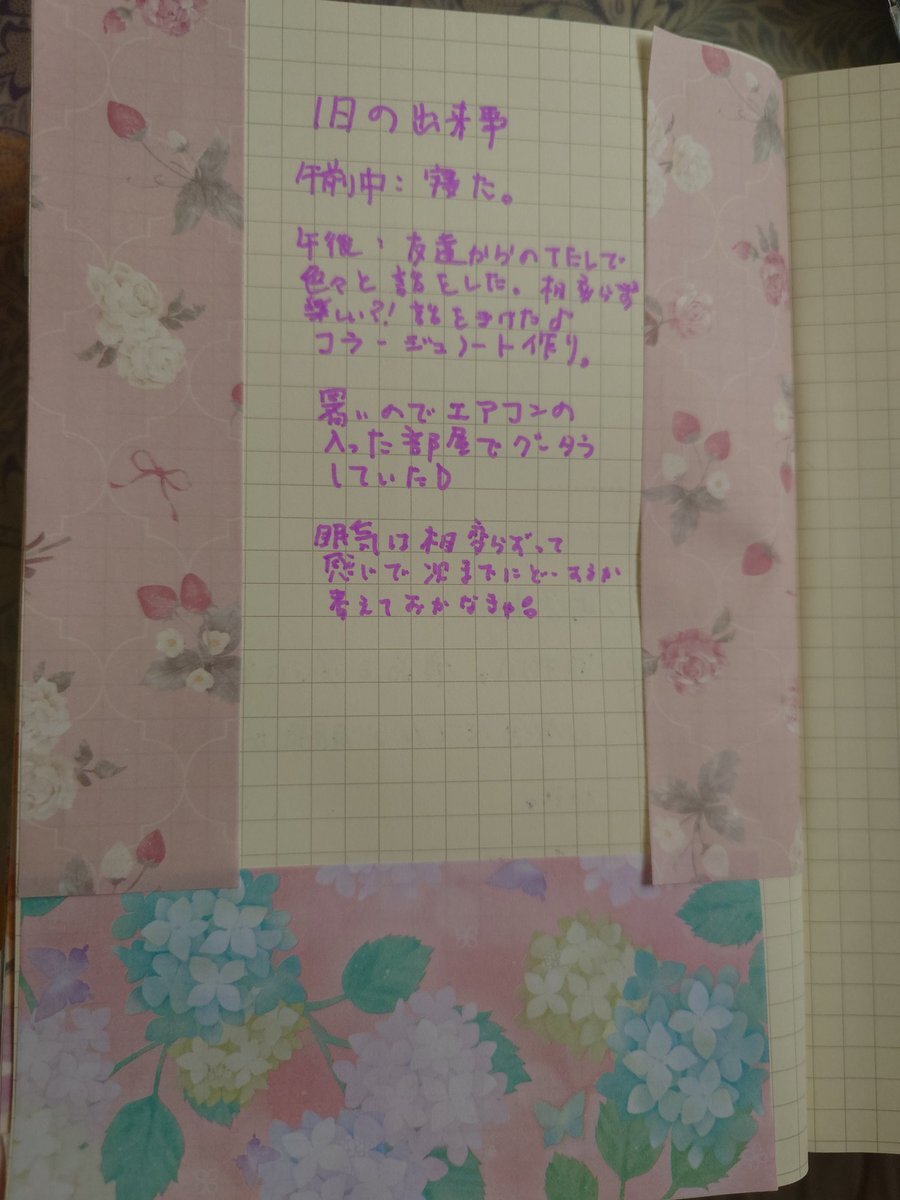 1日の出来事
午前中: 寝た。
午後: 友達からのTELで
色々と話をした。相変らず
楽しい?! 話をきけた♪
コラージュノート作り。
暑いのでエアコンの
入った部屋でグータラ
していた
眠気は相変らずって
感じで次までにどーするか
考えておかなきゃ。